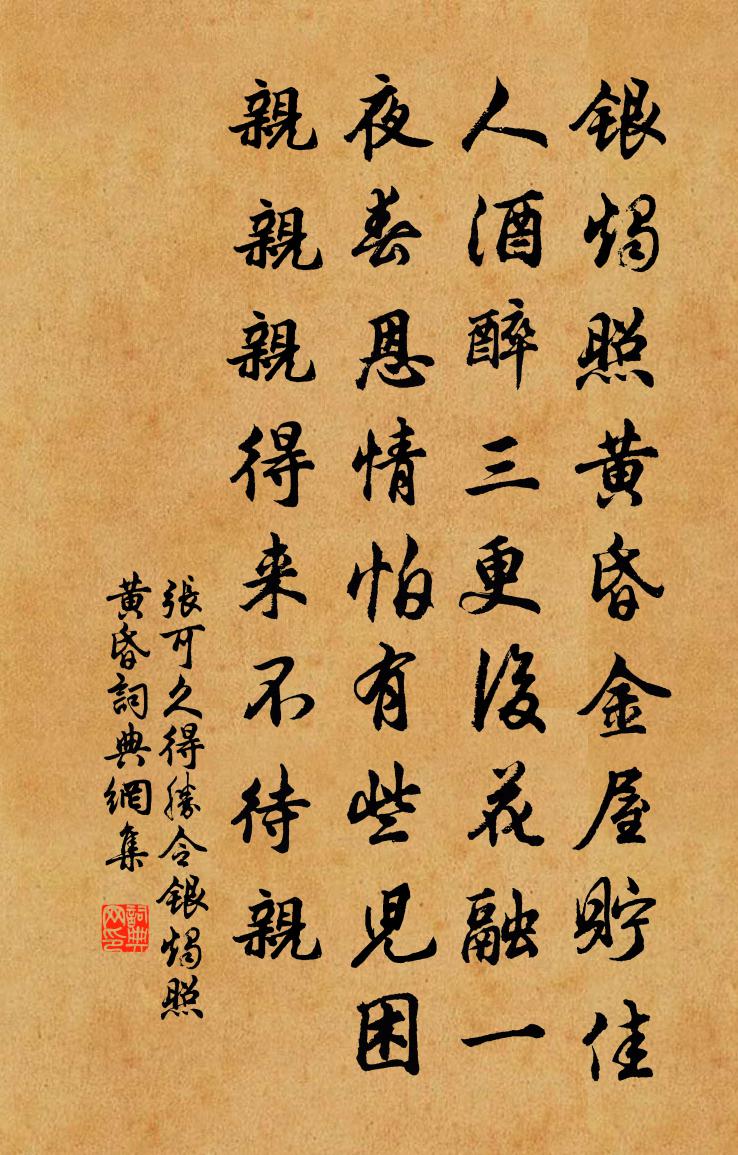 銀燭照黄昏金屋貯佳
人酒醉三更後花融一
夜春恩情怕有些兒困
親親親得来不待親
張可久得勝令銀燭照
黄昏詞典網集
詞典网印